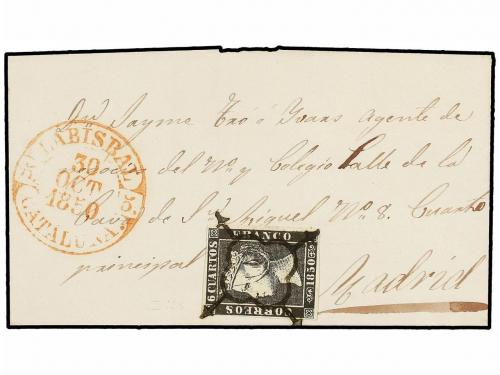 LABISBAL
30
OCT
1850
CATALUÑA.
Dn Jayme Tró ó Yvars Agente de
del No. y Colegio Calle de la
Cava de Sn Miguel No. 8. Cuarto
principal
Madrid
FRANCO
6 CUARTOS
1850
CORREOS